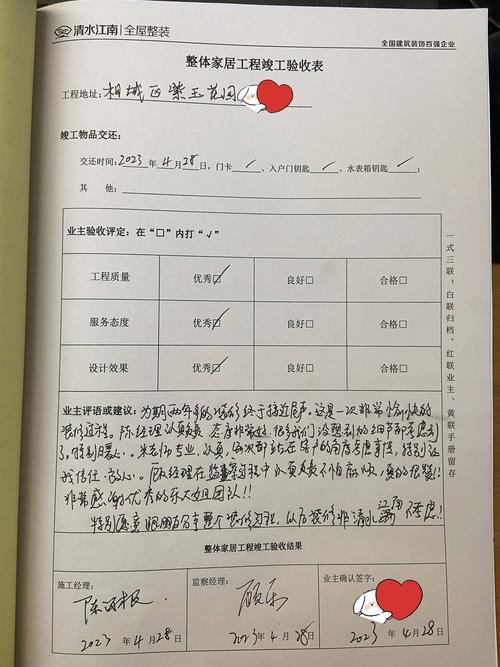 清水江南 | 全屋整装
全国建筑装饰百强企业
整体家居工程竣工验收表
工程地址：相城区紫玉花园
竣工物品交还：
交还时间：2023 年 4 月 28 日，门卡 / 、入户门钥匙 / 、水表箱钥匙 / ；
其 他：
业主验收评定：在“□”内打“√”
工程质量 优秀☑ 良好□ 合格□
服务态度 优秀☑ 良好□ 合格□
设计效果 优秀☑ 良好□ 合格□
业主评语或建议：为期两年多的装修终于接近尾声。这是一次非常愉快的
装修过程。陈经理认真负责 态度非常好，很多我们没想到的细节都考虑到
了，特别暖心。 专业，认真，每次都站在客户的角度考虑事情，特别让
我信任、放心。顾经理在监察过程中认真负责不怕麻烦，真的很赞！
非常感谢优秀的 团队！！
特别愿意跟朋友分享整个装修过程，以后装修非清水江南不考虑！
整体家居工程竣工验收结果
施工经理：
监察经理：
业主确认签字：
陈
顾乐
2023 年 4 月 28 日
2023 年 4 月 28 日
2023 年 4 月 28 日
一式三联：白联归档、红联业主、黄联手册留存